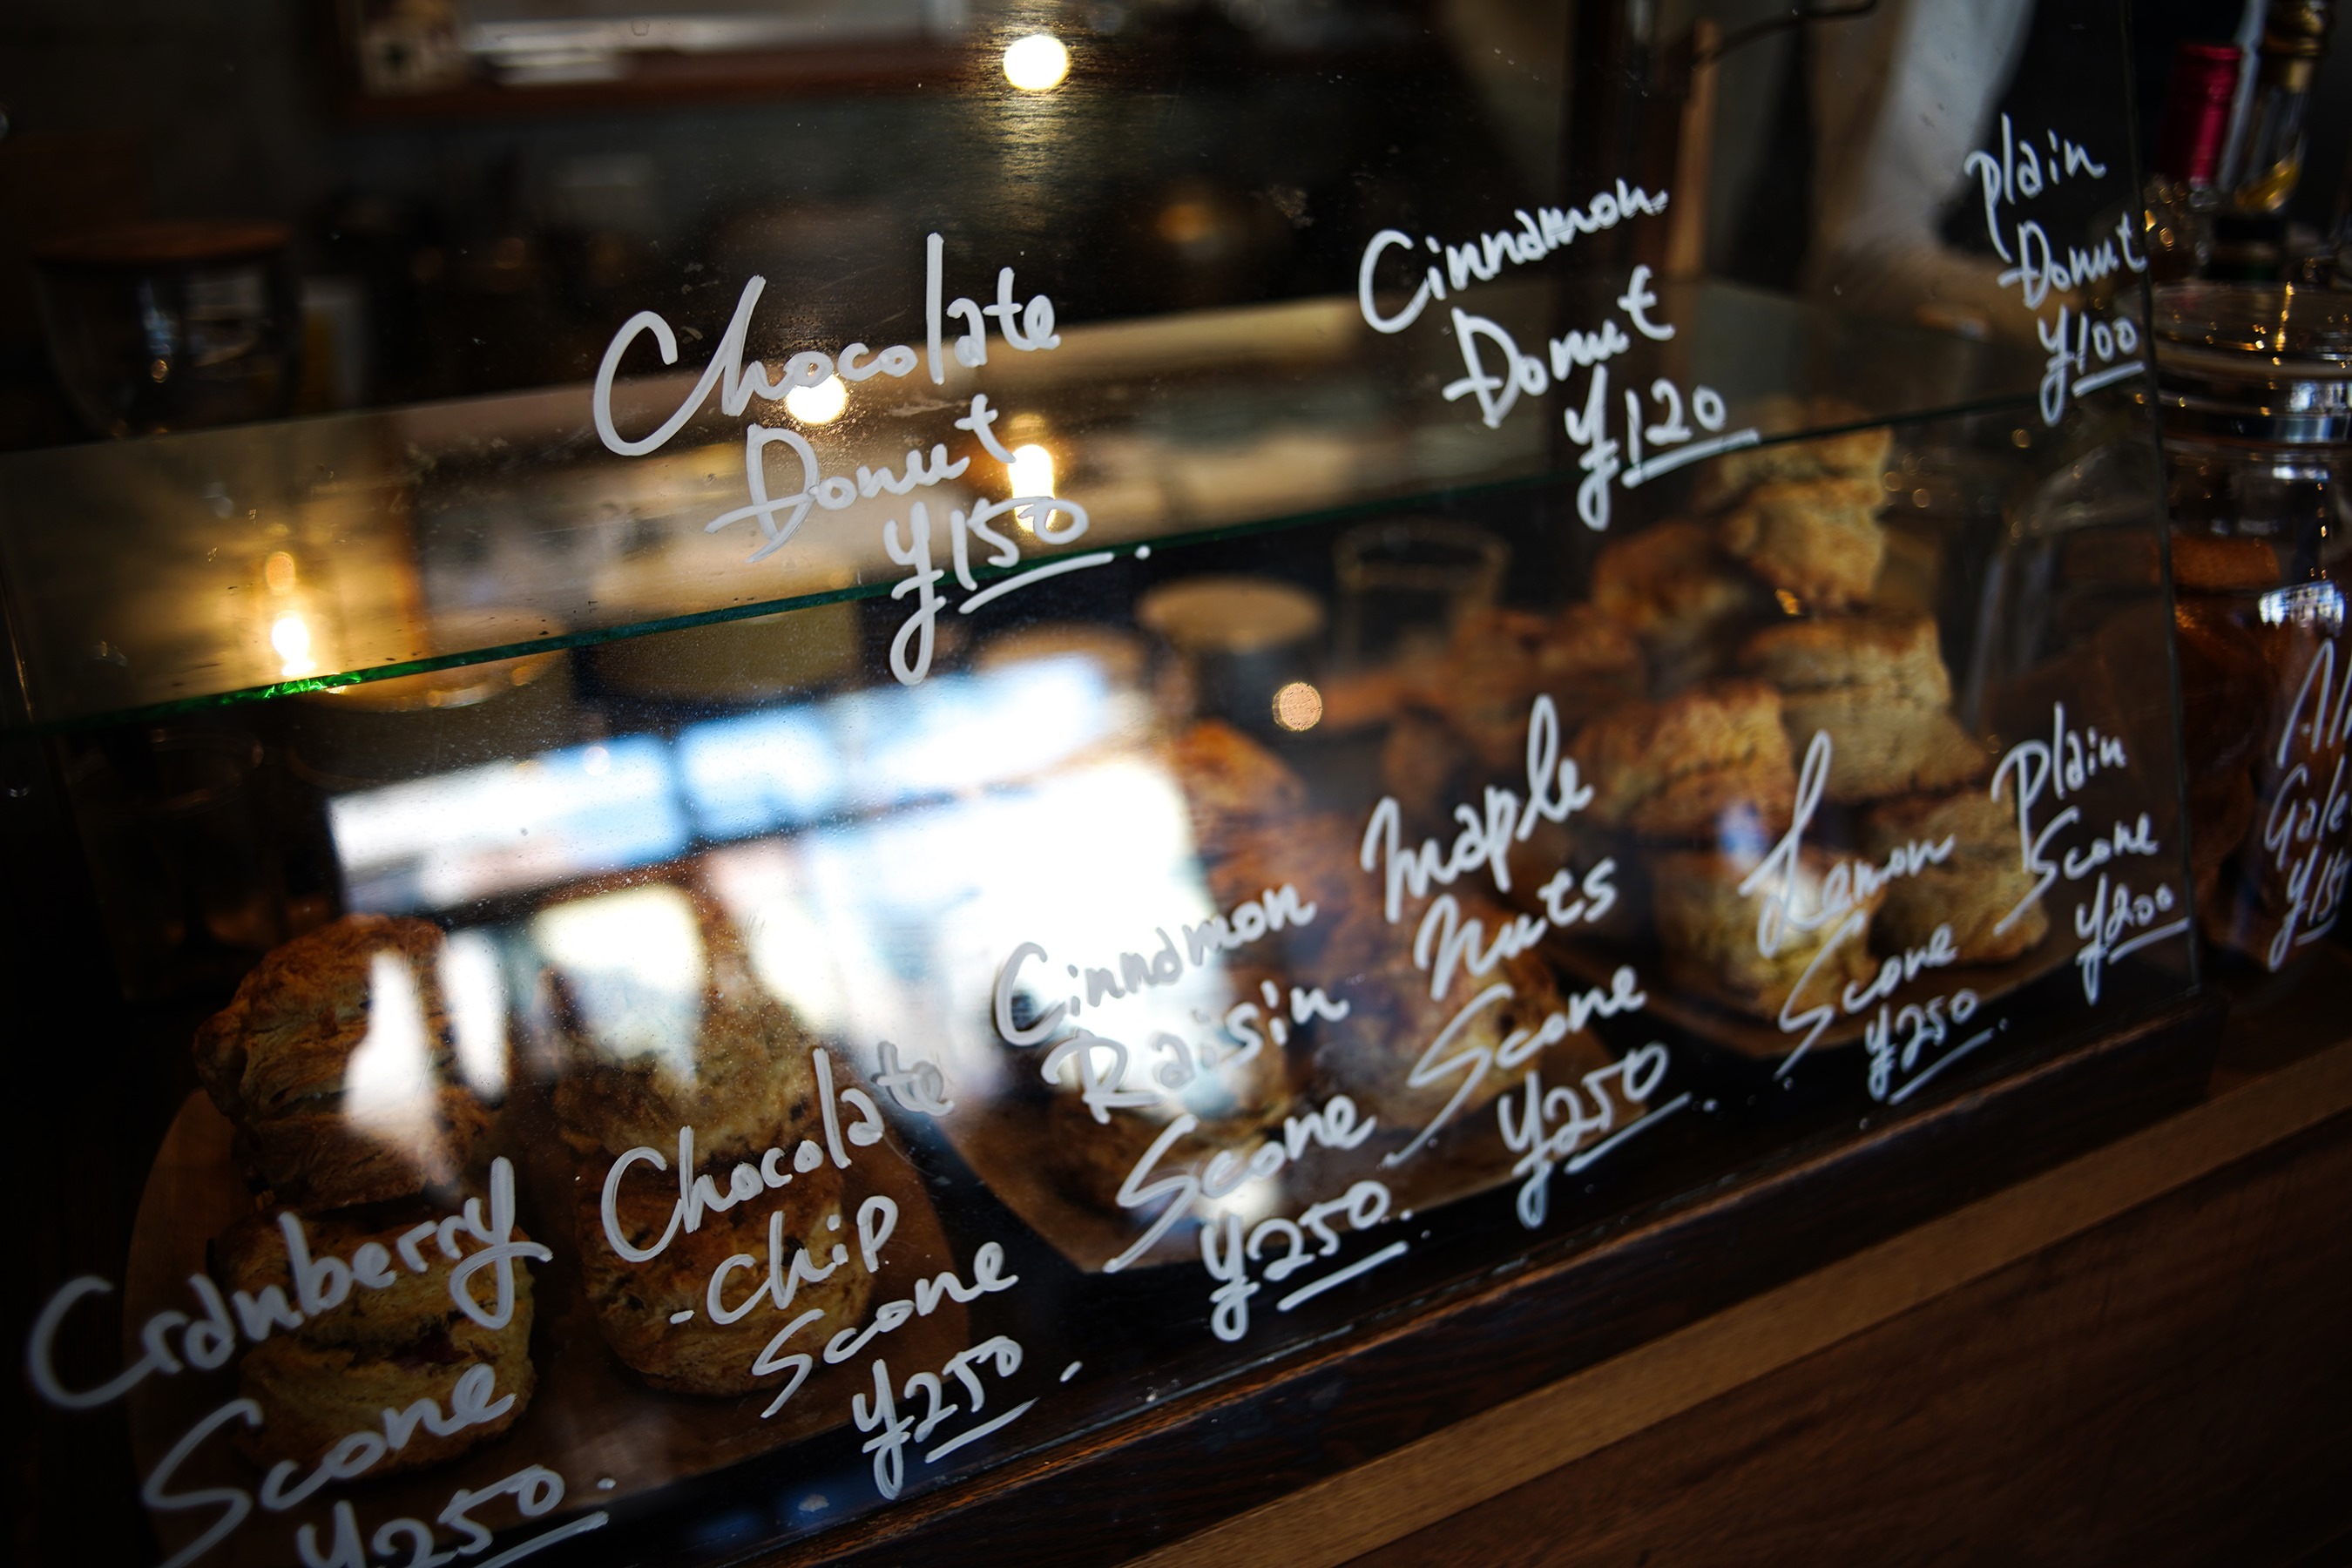 Chocolate
Donut
¥150.
Cinnamon
Donut
¥120
Plain
Donut
¥100
Cranberry
Scone
¥250.
Chocolate
-chip
Scone
¥250.
Cinnamon
Raisin
Scone
¥250.
Maple
Nuts
Scone
¥250.
Lemon
Scone
¥250.
Plain
Scone
¥200